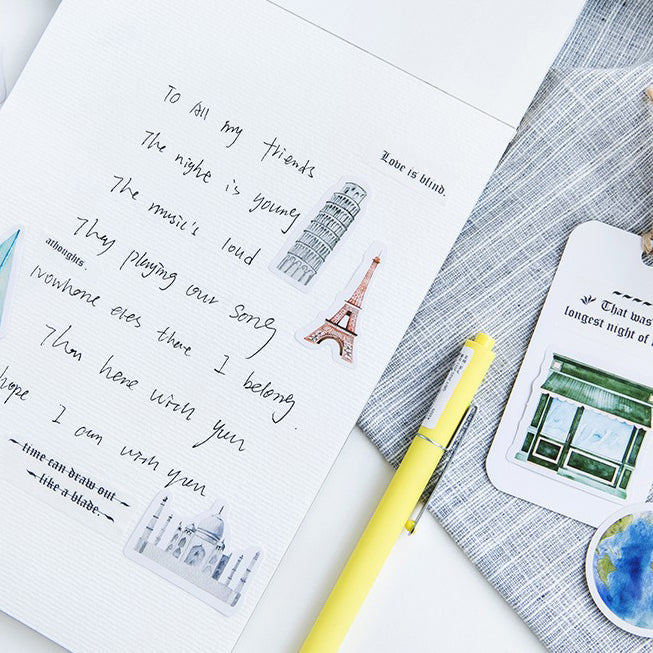 To All my friends
The night is young
The music's loud
They playing our song
Nowhere eles there I belong.
Than here with you
hope I am with you
Love is blind.
athoughts.
time can draw out
like a blade.
That was
longest night of